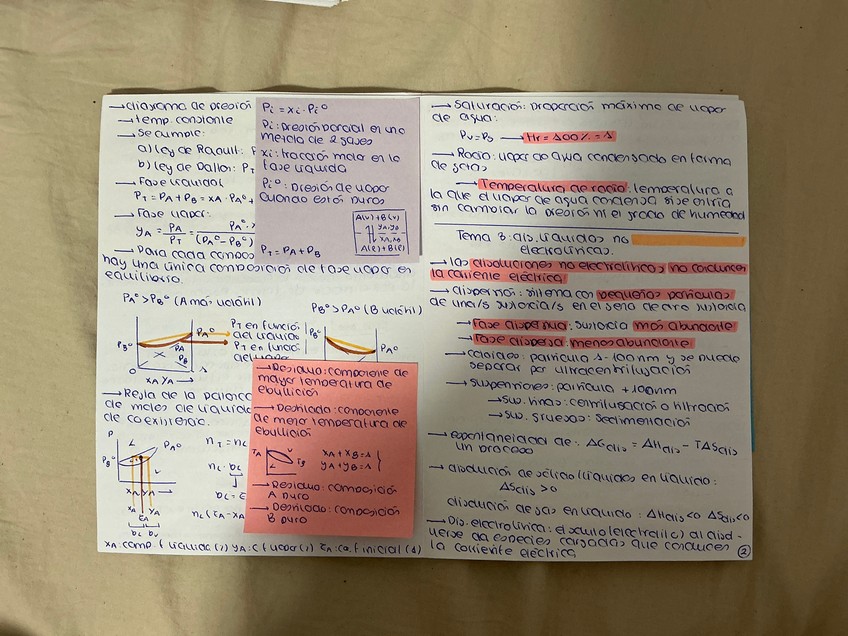 →diagrama de presión
→temp. constante
→se cumple:
a) Ley de Raoult: P
b) Ley de Dalton: PT
→Fase líquida:
PT = PA + PB = XA · PA° +
→Fase vapor:
yA = PA / PT = PA° · X / (PA° - PB°)
→Para cada compos
hay una única composición de fase vapor en
equilibrio.
PA° > PB° (A más volátil)
PB° > PA° (B volátil)
PB°
PA°
PA
PB
0
XA YA →
PT en funció
del líquido
PT en funció
PB°
PA°
→Regla de la palanca
de moles de líquido
de coexistencia.
P
L
PA°
PB°
V
XA YA →
XA YA
ZA
bL bV
nT = nL
nL · bL
nL (ZA - XA
XA: comp. f líquida (s) yA: c f vapor (s) ZA: co. f inicial (d)
Pi = xi · Pi°
Pi: presión parcial en una
mezcla de 2 gases
xi: fracción molar en la
fase líquida
Pi°: presión de vapor
cuando están puros
PT = PA + PB
A(v) + B(v)
yA, yB
xA, xB
A(l) + B(l)
→Residuo: componente de
mayor temperatura de
ebullición
→Destilado: componente
de menor temperatura de
ebullición
TA
TB
V
L
XA + XB = 1
YA + YB = 1
→Residuo: composición
A puro
→Destilado: composición
B puro
→Saturación: proporción máxima de vapor
de agua:
Pv = P0 → Hr = 100% = 1
→Rocío: vapor de agua condensado en forma
de gotas
→Temperatura de rocío: temperatura a
la que el vapor de agua condensa si se enfría
sin cambiar la presión ni el grado de humedad
Tema 8: dis. líquidas no
electrolíticas.
→las disoluciones no electrolíticas no conducen
la corriente eléctrica
→dispersión: sistema con pequeñas partículas
de una/s sustancia/s en el seno de otra sustancia
→Fase dispersiva: sustancia más abundante
→Fase dispersa: menos abundante
→coloides: partícula 1-100nm y se puede
separar por ultracentrifugación
→suspensiones: partícula +100nm
→sus. finas: centrifugación o filtración
→sus. gruesas: sedimentación
→espontaneidad de: ΔGdis = ΔHdis - TΔSdis
un proceso
→disolución de sólido/líquidos en líquido:
ΔSdis > 0
disolución de gas en líquido: ΔHdis < 0 ΔSdis < 0
→Dis. electrolítica: el soluto (electrolito) al disol-
verse da especies cargadas que conducen
la corriente eléctrica
2